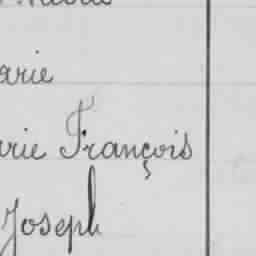 arie
arie François
Joseph